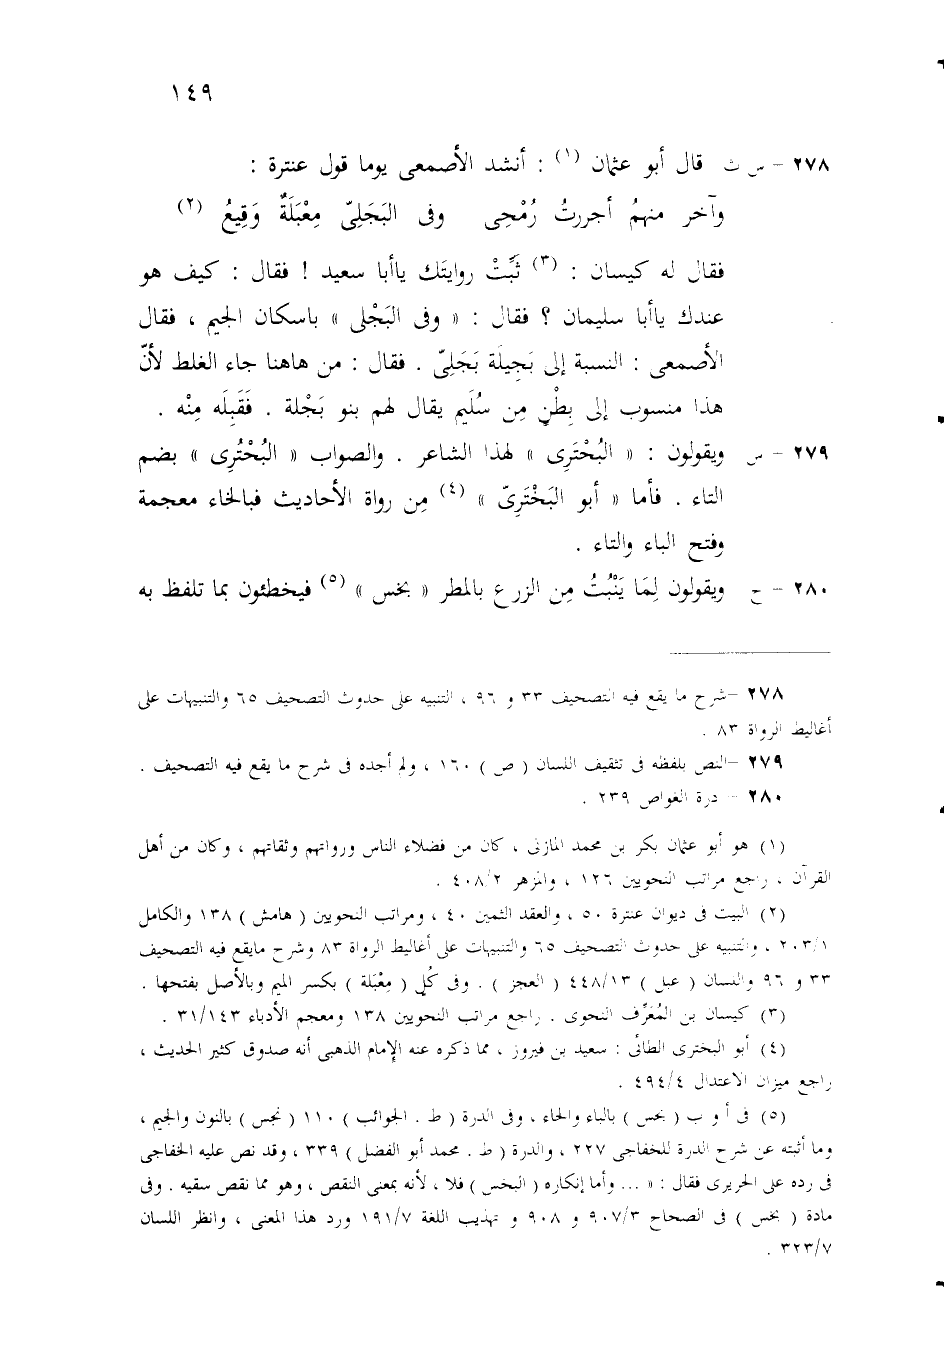 ١٤٩
٢٧٨ – س ث قال أبو عثمان (١) : أنشد الأصمعى يوما قول عنترة :
وآخر منهمُ أجررتُ رُمْحِى وفى البَجَلِىّ مِعْبَلَةٌ وَقِيعُ (٢)
فقال له كيسان : (٣) ثَبِّتْ روايتَك ياأبا سعيد ! فقال : كيف هو
عندك ياأبا سليمان ؟ فقال : « وفى البَجْلى » باسكان الجيم ، فقال
الأصمعى : النسبة إلى بَجِيلَة بَجَلِىّ . فقال : من هاهنا جاء الغلط لأنّ
هذا منسوب إلى بِطْنٍ مِن سُلَيم يقال لهم بنو بَجْلة . فَقَبِلَه مِنْه .
٢٧٩ – س ويقولون : « البُحْتَرِى » لهذا الشاعر . والصواب « البُحْتُرِى » بضم
التاء . فأما « أبو البَخْتَرِىّ » (٤) مِن رواة الأحاديث فبالخاء معجمة
وفتح الباء والتاء .
٢٨٠ – ح ويقولون لِمَا يَنْبُتُ مِن الزرع بالمطر « بخس » (٥) فيخطئون بما تلفظ به
٢٧٨ –شرح ما يقع فيه التصحيف ٣٣ و ٩٦ ، التنبيه على حدوث التصحيف ٦٥ والتنبيهات على
أغاليط الرواة ٨٣ .
٢٧٩ –النص بلفظه فى تثقيف اللسان ( ص ) ١٦٠ ، ولم أجده فى شرح ما يقع فيه التصحيف .
٢٨٠ – درة الغواص ٢٣٩ .
(١) هو أبو عثمان بكر بن محمد المازنى ، كان من فضلاء الناس ورواتهم وثقاتهم ، وكان من أهل
القرآن ، راجع مراتب النحويين ١٢٦ ، والمزهر ٤٠٨/٢ .
(٢) البيت فى ديوان عنترة ٥٠ ، والعقد الثمين ٤٠ ، ومراتب النحويين ( هامش ) ١٣٨ والكامل
٢٠٣/١ ، والتنبيه على حدوث التصحيف ٦٥ والتنبيهات على أغاليط الرواة ٨٣ وشرح مايقع فيه التصحيف
٣٣ و ٩٦ واللسان ( عبل ) ٤٤٨/١٣ ( العجز ) . وفى كُلٍ ( مِعْبَلة ) بكسر الميم وبالأصل بفتحها .
(٣) كيسان بن المُعَرِّف النحوى . راجع مراتب النحويين ١٣٨ ومعجم الأدباء ٣١/١٤٣ .
(٤) أبو البخترى الطائى : سعيد بن فيروز ، مما ذكره عنه الإمام الذهبى أنه صدوق كثير الحديث ،
راجع ميزان الاعتدال ٤٩٤/٤ .
(٥) فى أ و ب ( بحس ) بالباء والحاء ، وفى الدرة ( ط . الجوائب ) ١١٠ ( نجس ) بالنون والجيم ،
وما أثبته عن شرح الدرة للخفاجى ٢٢٧ ، والدرة ( ط . محمد أبو الفضل ) ٣٣٩ ، وقد نص عليه الخفاجى
فى رده على الحريرى فقال : « ... وأما إنكاره ( البخس ) فلا ، لأنه بمعنى النقص ، وهو مما نقص سقيه . وفى
مادة ( بخس ) فى الصحاح ٩٠٧/٣ و ٩٠٨ و تهذيب اللغة ١٩١/٧ ورد هذا المعنى ، وانظر اللسان
٣٢٣/٧ .